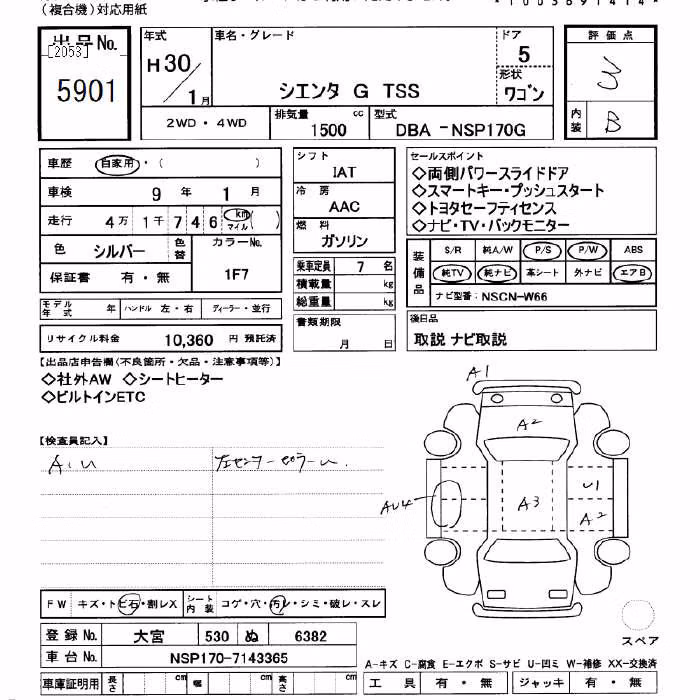 (複合機)対応用紙
出品No.
[2053]
5901
年式
H30/1月
車名・グレード
シエンタ G TSS
ドア
5
形状
ワゴン
評価点
3
内装
B
2WD・4WD
排気量
1500 cc
型式
DBA -NSP170G
車歴 自家用・( )
車検 9年 1月
走行 4万1千746 km マイル( )
色 シルバー 色替 カラーNo.
保証書 有・無 1F7
モデル年式 年 ハンドル 左・右 ディーラー・並行
リサイクル料金 10,360 円 預託済
シフト
IAT
冷房
AAC
燃料
ガソリン
乗車定員 7 名
積載量 kg
総重量 kg
書類期限
月 日
セールスポイント
◇両側パワースライドドア
◇スマートキー・プッシュスタート
◇トヨタセーフティセンス
◇ナビ・TV・バックモニター
装備品
S/R 純A/W P/S P/W ABS
純TV 純ナビ 革シート 外ナビ エアB
ナビ型番: NSCN-W66
後日品
取説 ナビ取説
【出品店申告欄(不良箇所・欠品・注意事項等)】
◇社外AW ◇シートヒーター
◇ビルトインETC
【検査員記入】
A・U
左センターピラーU.
A1
A2
U1
AU4
A3
A2
FW キズ・トビ石・割レX シート内装 コゲ・穴・汚レ・シミ・破レ・スレ
スペア
登録No. 大宮 530 ぬ 6382
車台No. NSP170-7143365
A-キズ C-腐食 E-エクボ S-サビ U-凹ミ W-補修 XX-交換済
車庫証明用 長さ cm 幅 cm 高さ cm
工具 有・無 ジャッキ 有・無